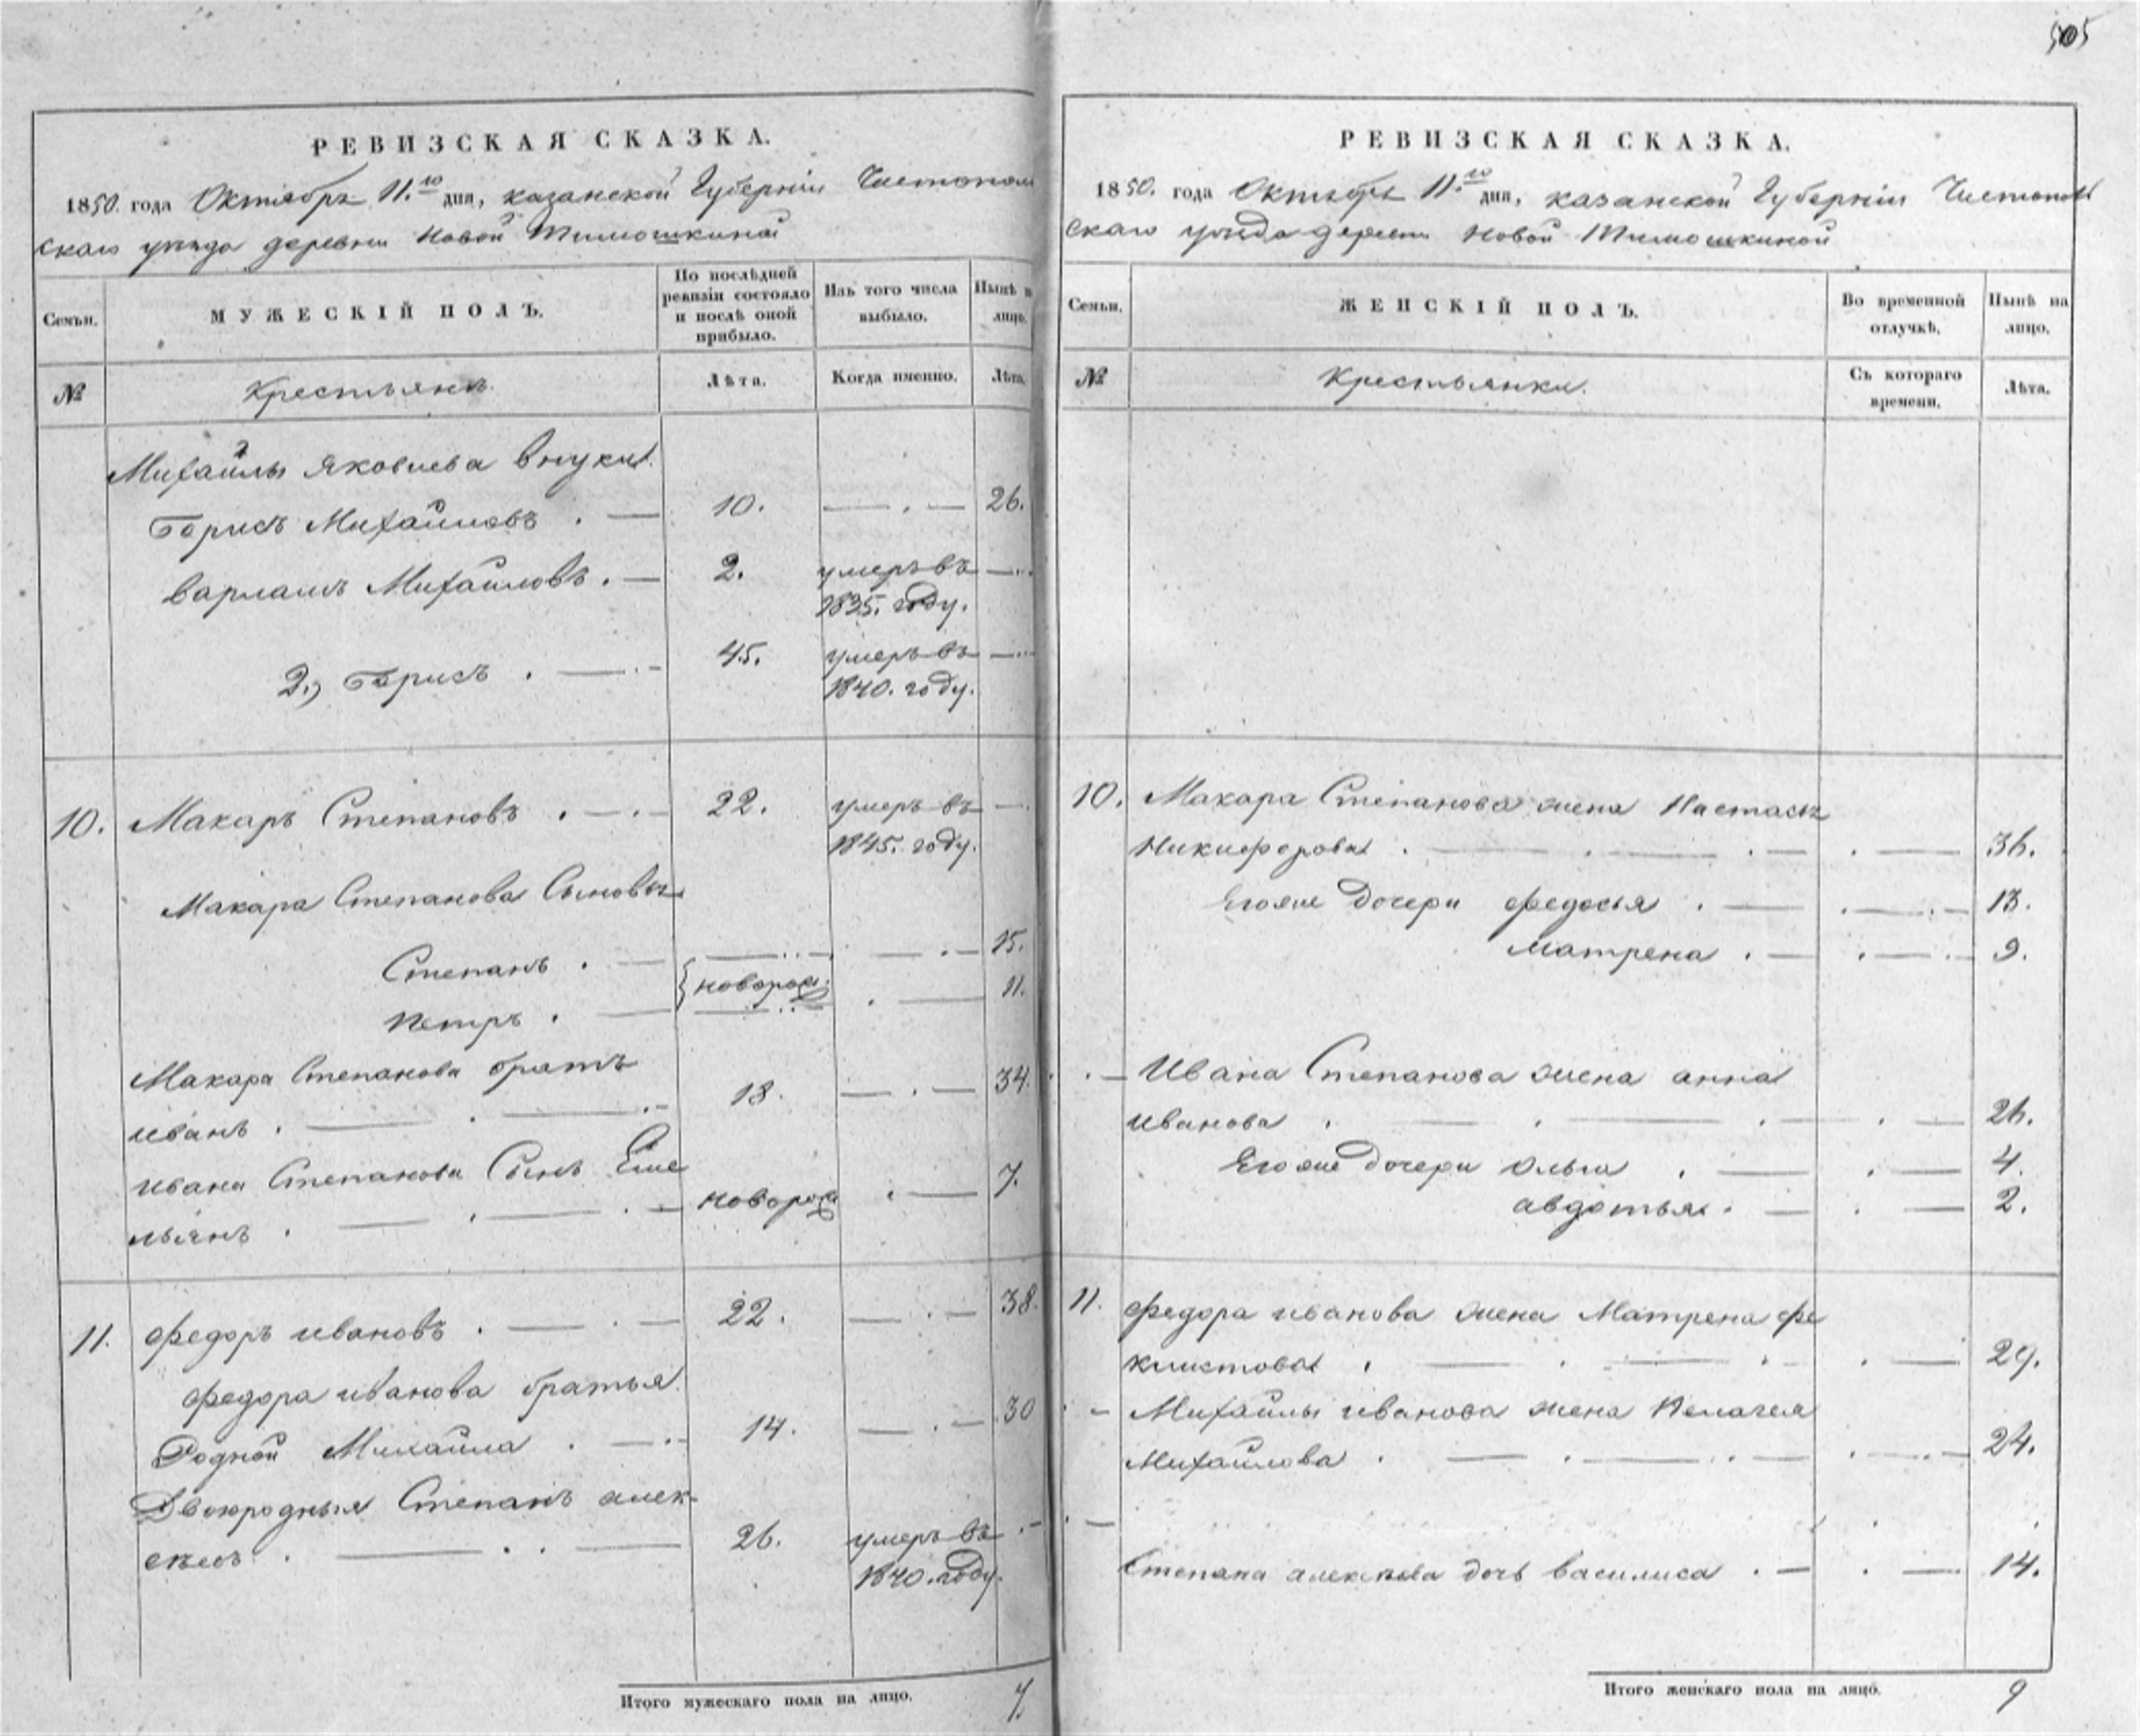 505
РЕВИЗСКАЯ СКАЗКА.
1850. года Октября 11.го дня, казанской Губерніи Чистополь
скаго уѣзда деревни Новой Тимошкиной
Семьи.
МУЖЕСКІЙ ПОЛЪ.
По послѣдней ревизіи состояло и послѣ оной прибыло.
Изъ того числа выбыло.
Нынѣ на лицо.
№
Крестьянъ.
Лѣта.
Когда именно.
Лѣта.
Михайлы Яковлева внуки
Борисъ Михайловъ . — 10. — . — 26.
Варламъ Михайловъ . — 2. умеръ въ —
1835. году.
2,, Борисъ . — 45. умеръ въ —
1840. году.
10. Макаръ Степановъ . — . 22. умеръ въ —
1845. году.
Макара Степанова Сыновья
Степанъ . — — . — 15.
новорож:
Петръ . — . — 11.
Макара Степанова братъ
иванъ . — 18. — . — 34.
ивана Степанова Сынъ Еме
льянъ . — новорож . — 7.
11. Федоръ ивановъ . — 22. — . — 38.
Федора иванова братья
Родной Михайла . — 14. — . — 30
Двоюродныя Степанъ алек-
сѣевъ . — 26. умеръ въ —
1840. году.
Итого мужескаго пола на лицо. 7.
РЕВИЗСКАЯ СКАЗКА.
1850. года Октября 11.го дня, казанской Губерніи Чистополь
скаго уѣзда деревни Новой Тимошкиной
Семьи.
ЖЕНСКІЙ ПОЛЪ.
Во временной отлучкѣ.
Нынѣ на лицо.
№
Крестьянки.
Съ котораго времени.
Лѣта.
10. Макара Степанова жена Настасья
Никифорова . — . — 36.
Егоже Дочери Федосья . — . — 13.
Матрена . — . — 9.
Ивана Степанова жена анна
иванова . — . — 26.
Егоже дочери Ольга . — . — 4.
авдотья . — . — 2.
11. Федора иванова жена Матрена фе
клистова . — . — 29.
Михайлы иванова жена Пелагея
Михайлова . — . — 24.
Степана алексѣева дочь василиса . — . — 14.
Итого женскаго пола на лицо. 9